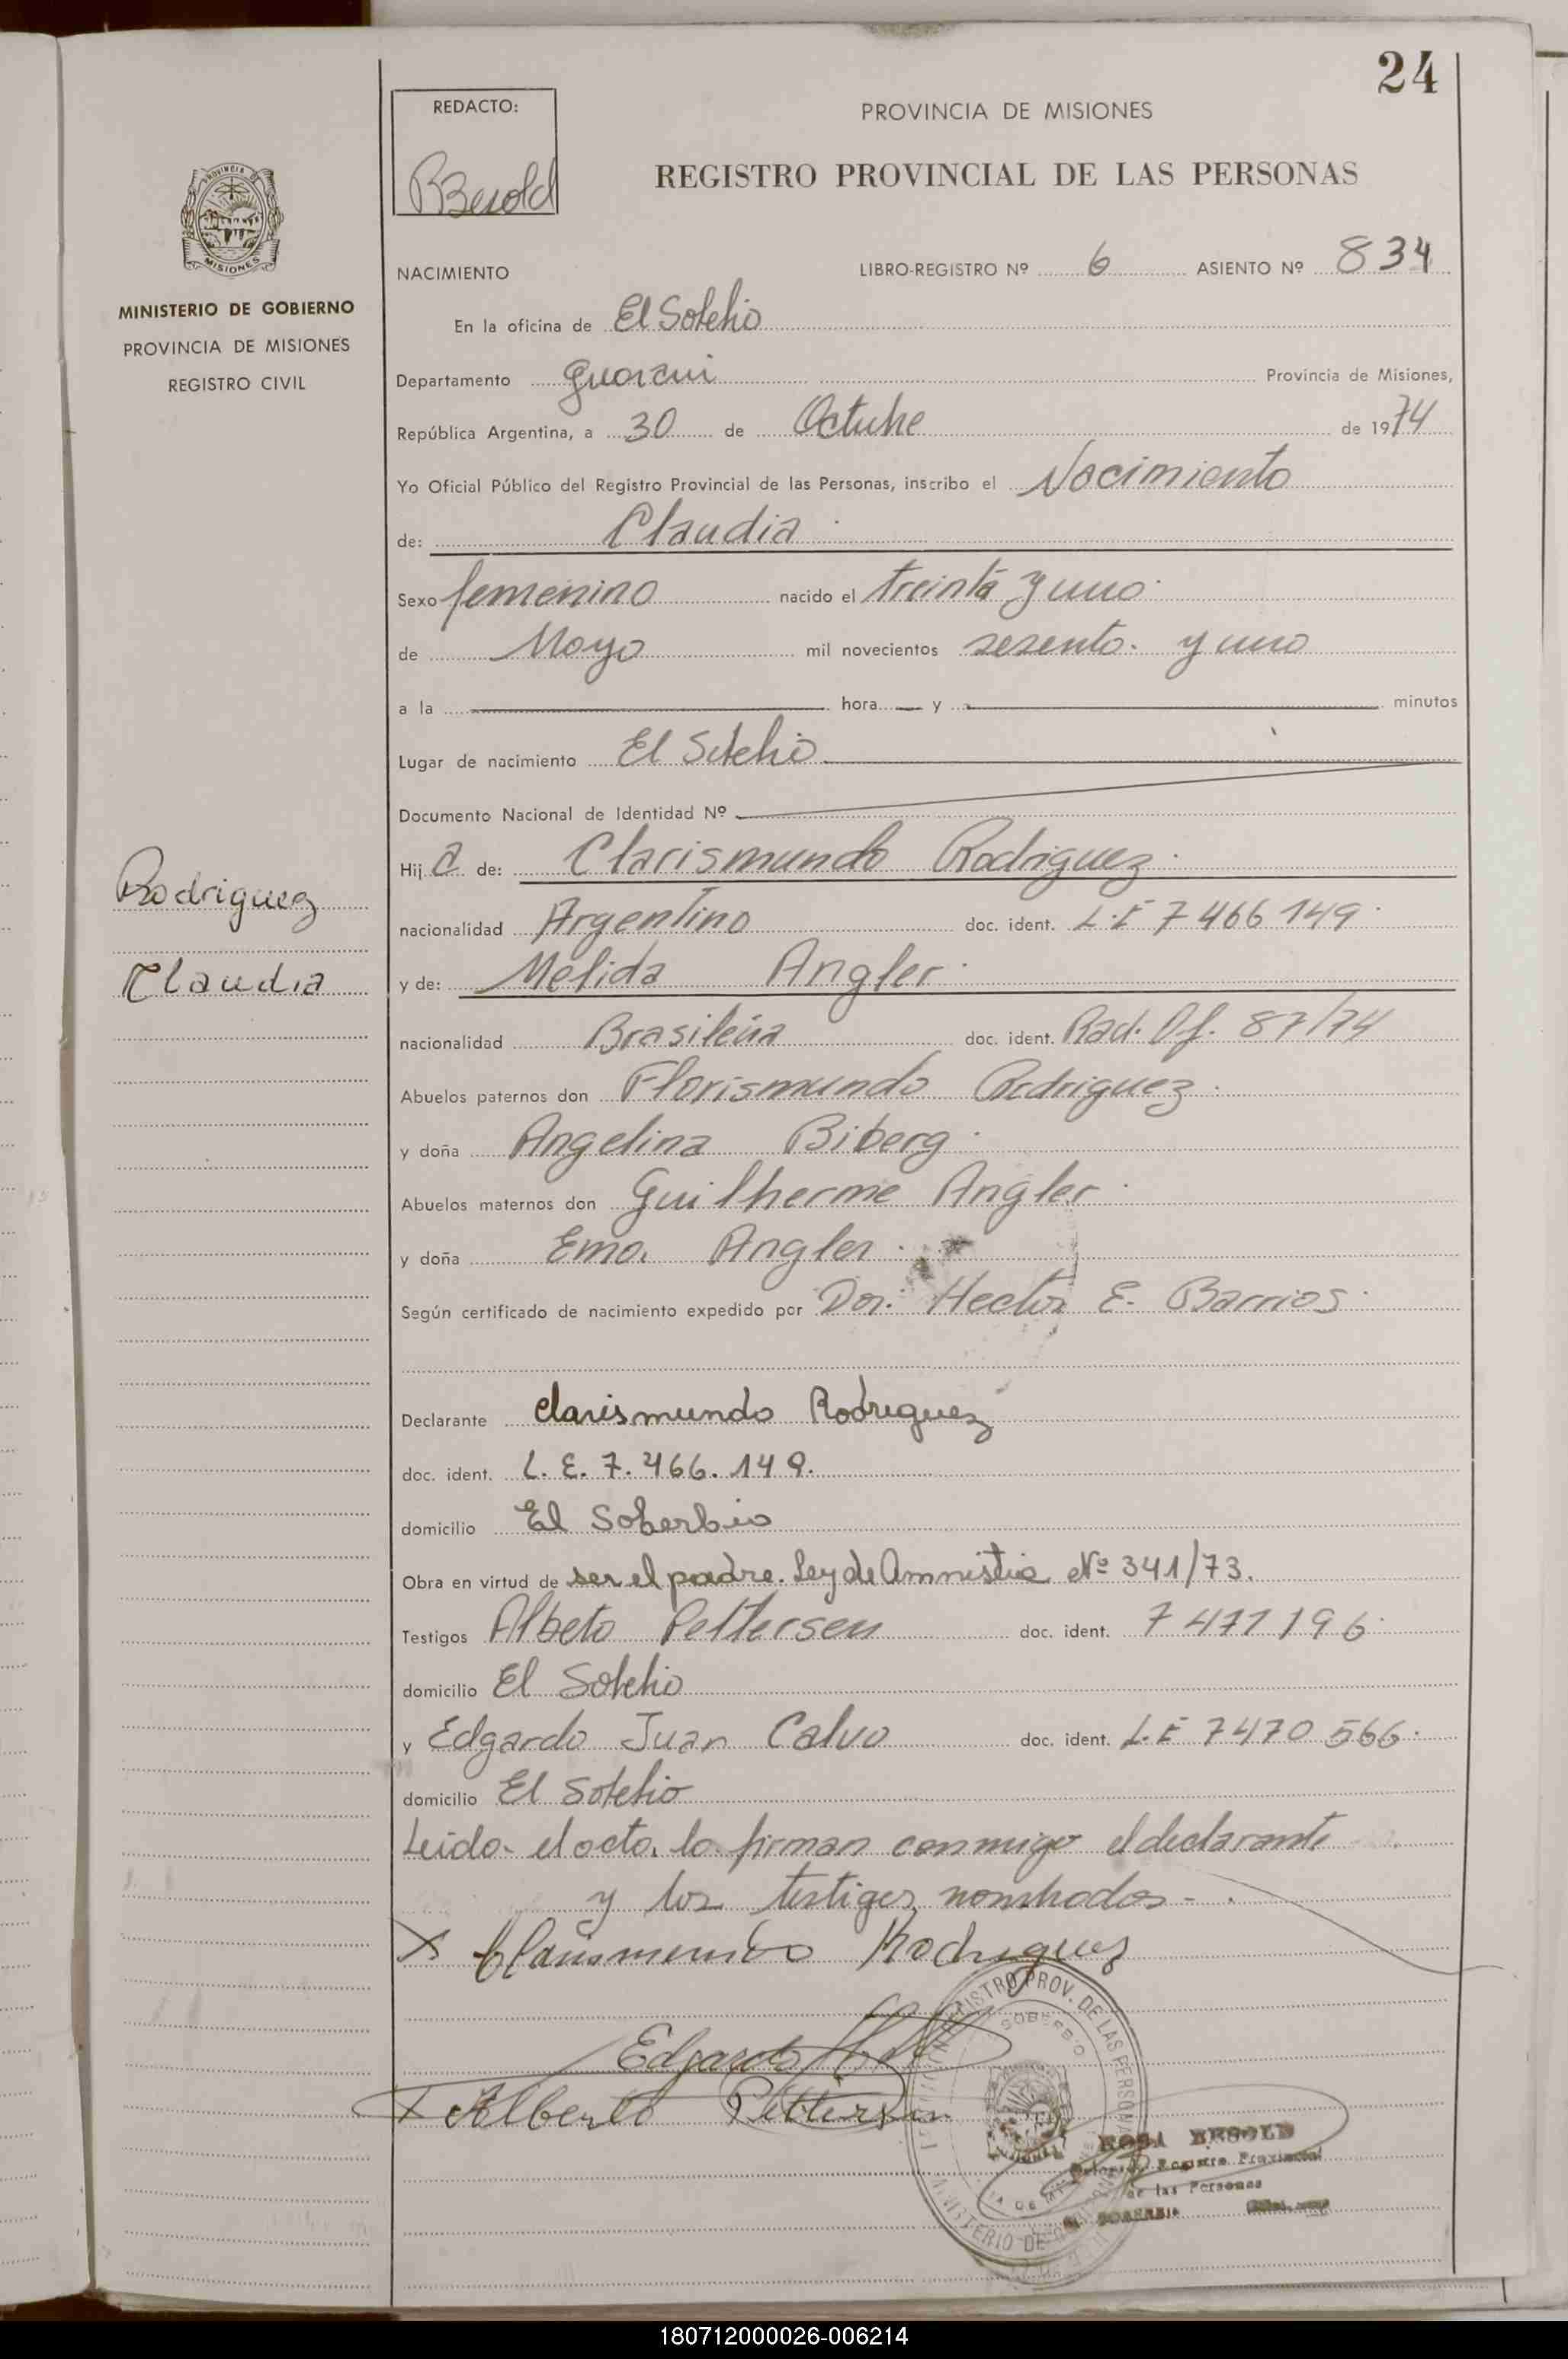 24
REDACTO:
RBesold
PROVINCIA DE MISIONES
REGISTRO PROVINCIAL DE LAS PERSONAS
PROVINCIA DE
MISIONES
MINISTERIO DE GOBIERNO
PROVINCIA DE MISIONES
REGISTRO CIVIL
NACIMIENTO LIBRO-REGISTRO Nº 6 ASIENTO Nº 834
En la oficina de El Soberbio
Departamento Guarani Provincia de Misiones,
República Argentina, a 30 de Octubre de 1974
Yo Oficial Público del Registro Provincial de las Personas, inscribo el Nacimiento
de: Claudia
Sexo femenino nacido el treinta y uno
de Mayo mil novecientos sesenta y uno
a la hora y minutos
Lugar de nacimiento El Soberbio
Documento Nacional de Identidad Nº
Hij a de: Clarismundo Rodriguez
Rodriguez
nacionalidad Argentino doc. ident. L.E 7466149
Claudia
y de: Melida Angler
nacionalidad Brasileña doc. ident. Rad. Of. 87/74
Abuelos paternos don Florismundo Rodriguez
y doña Angelina Biberg
Abuelos maternos don Guilherme Angler
y doña Ema Angler
Según certificado de nacimiento expedido por Dor. Hector E. Barrios
Declarante Clarismundo Rodriguez
doc. ident. L. E. 7. 466. 149.
domicilio El Soberbio
Obra en virtud de ser el padre. Ley de Amnistia Nº 341/73.
Testigos Albeto Pettersen doc. ident. 7471196
domicilio El Soberbio
y Edgardo Juan Calvo doc. ident. L.E 7470566
domicilio El Soberbio
Leido el acta lo firman conmigo el declarante
y los testigos nombrados
X Clarismundo Rodriguez
Edgardo
X Alberto Pettersen
REGISTRO PROV. DE LAS PERSONAS
SOBERBIO
MINISTERIO DE
ROSA BESOLD
Registro Provincial
de las Personas
EL SOBERBIO
180712000026-006214